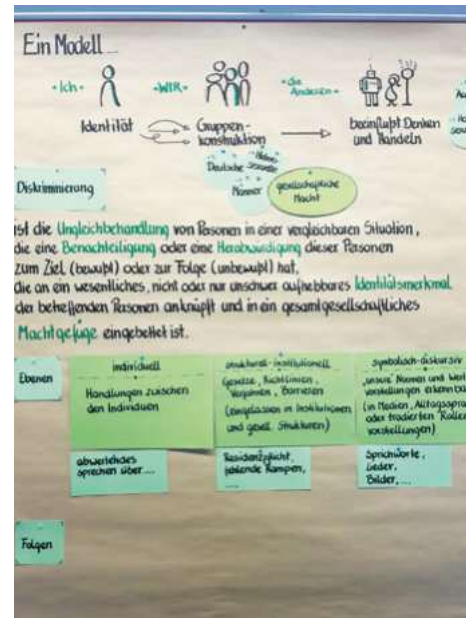 Ein Modell...
-Ich- -WIR- -die Anderen-
Identität Gruppen-
konstruktion
beeinflußt Denken
und Handeln
Deutsche
Männer
gesellschaftliche
Macht
Diskriminierung
ist die Ungleichbehandlung von Personen in einer vergleichbaren Situation,
die eine Benachteiligung oder eine Herabwürdigung dieser Personen
zum Ziel (bewußt) oder zur Folge (unbewußt) hat,
die an ein wesentliches, nicht oder nur unschwer aufhebbares Identitätsmerkmal
der betreffenden Personen anknüpft und in ein gesamtgesellschaftliches
Machtgefüge eingebettet ist.
Ebenen
individuell
Handlungen zwischen
den Individuen
abwertendes
sprechen über...
strukturell-institutionell
Gesetze, Richtlinien,
Barrieren
(eingelassen in Institutionen
und gesell. Strukturen)
Residenzpflicht,
fehlende Rampen,
....
symbolisch-diskursiv
"unsere" Normen und
vorstellungen
(in Medien,
oder tradierten
vorstellungen)
Sprichworte,
Lieder,
Bilder,...
Folgen